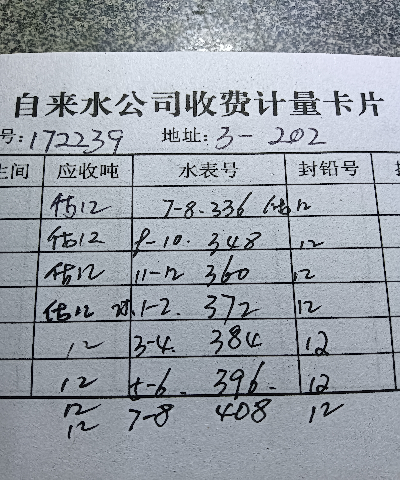 自来水公司收费计量卡片
号: 172239 地址: 3-202
生间 应收吨 水表号 封铅号
估12 7-8. 336 估12
估12 9-10. 348 12
估12 11-12 360 12
估12 1-2. 372 12
12 3-4. 384 12
12 5-6. 396. 12
12
12 7-8 408 12